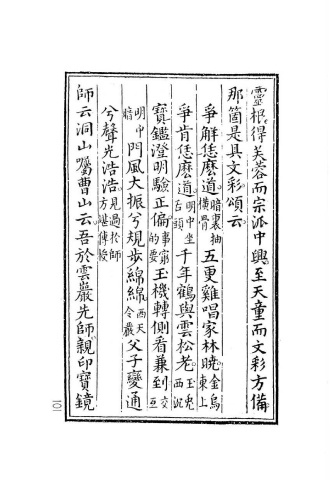 靈根。得芙蓉而宗派中興。至天童而文彩方備。
那箇是具文彩。頌云。
爭解恁麼道。暗裏抽橫骨五更雞唱家林曉。金烏東上
爭肯恁麼道。明中坐舌頭千年鶴與雲松老。玉兔西沉
寶鑑澄明驗正偏。事窮的要玉機轉側看兼到。交互
明中暗門風大振兮規步綿綿。西天令嚴父子變通
兮聲光浩浩。見過於師方堪傳授
師云洞山囑曹山云。吾於雲巖先師。親印寶鏡